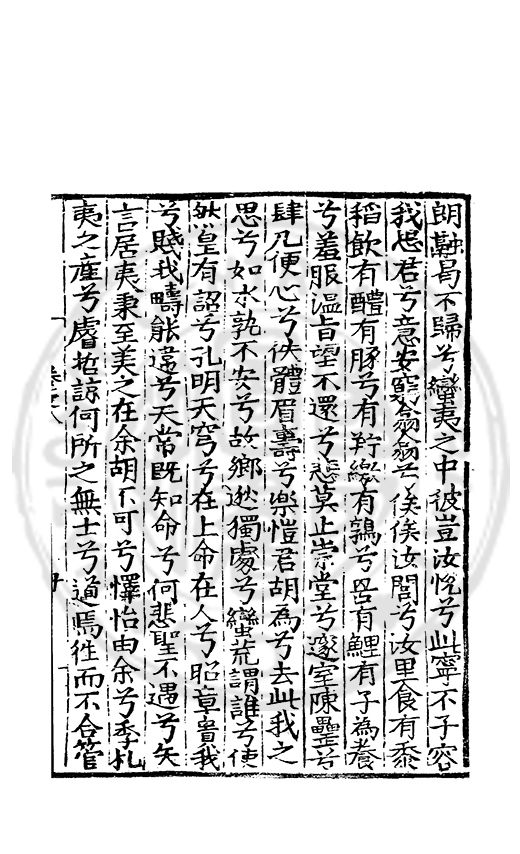 朗融曷不歸兮蠻夷之中彼豈汝悅兮此寧不子容
我思君兮意安窮翁翁兮俟俟汝閭兮汝里食有黍
稻飲有醴有豚兮有䍧繳有鶉兮罟有鯉有子為養
兮羞服溫旨望不還兮悲莫止崇堂兮邃室陳罍兮
肆几便心兮佚體眉壽兮樂愷君胡為兮去此我之
思兮如水孰不安兮故鄉逖獨處兮蠻荒謂誰兮使
然皇有詔兮孔明天穹兮在上命在人兮昭章貴我
兮賤我疇能違兮天常既知命兮何悲聖不遇兮矢
言居夷秉至美之在余胡不可兮懌怡由余兮季札
夷之產兮睿哲諒何所之無士兮道焉徃而不合管